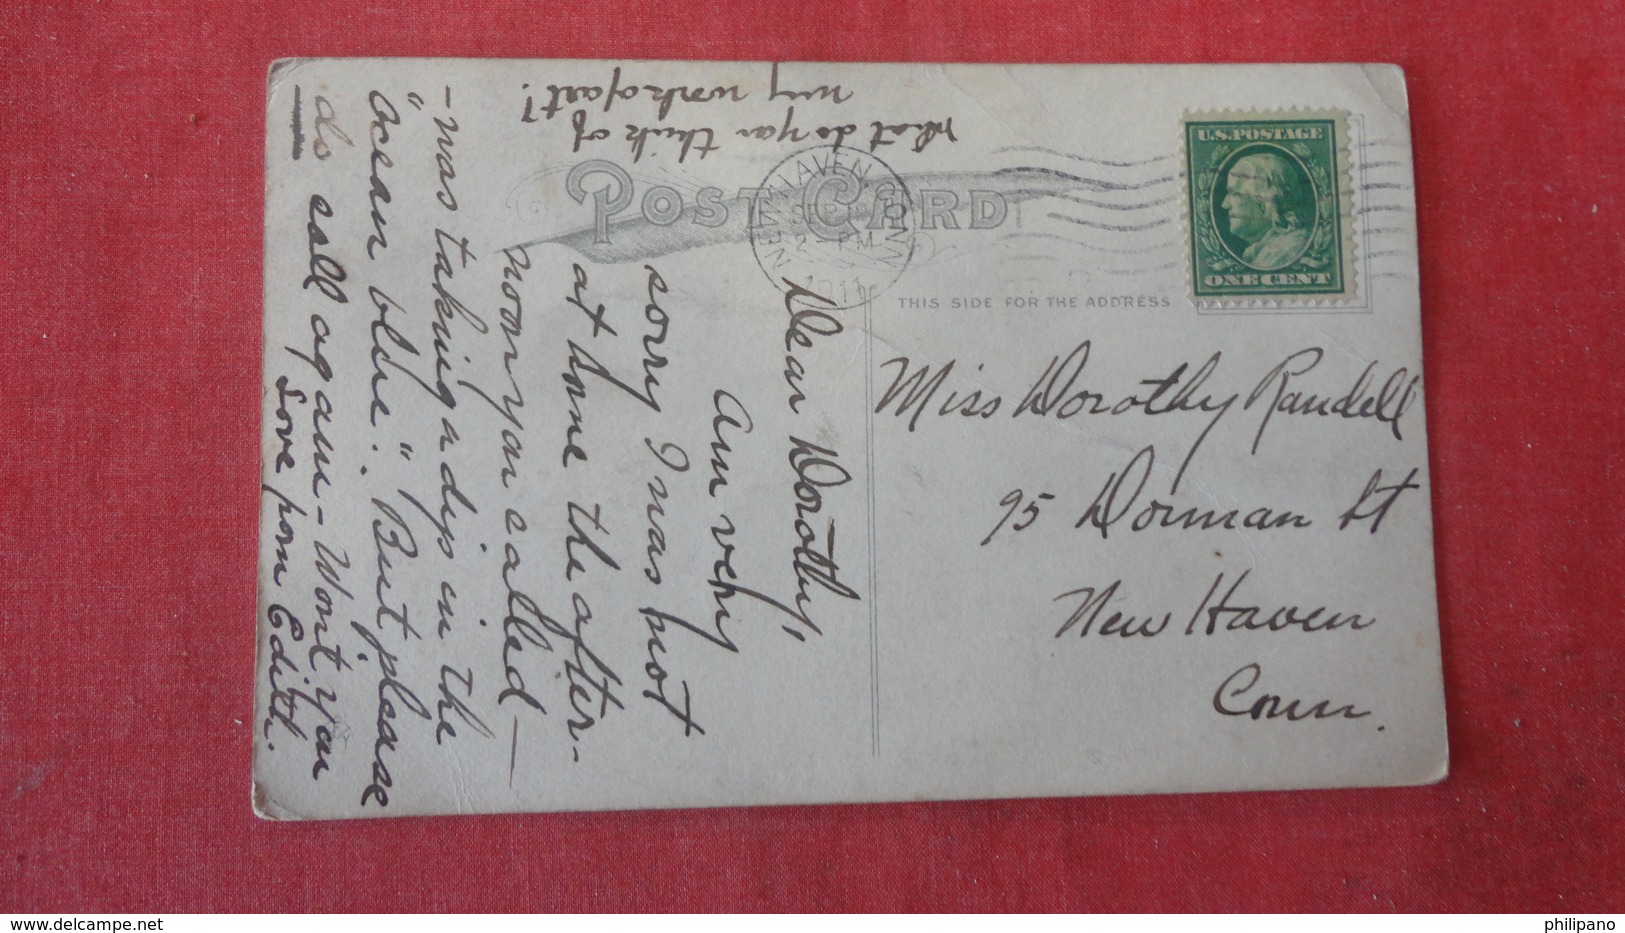 What do you think of
my work of art!
POST CARD
NEW HAVEN, CONN
SEP
2 - PM
1911
U.S. POSTAGE
ONE CENT
THIS SIDE FOR THE ADDRESS
Miss Dorothy Randell
95 Dorman St
New Haven
Conn.
Dear Dorothy,
Am very
sorry I was not
at home the after-
noon you called —
- was taking a dip in the
"ocean blue". But please
do call again - Wont you
Love from Edith.
delcampe.net
philipano